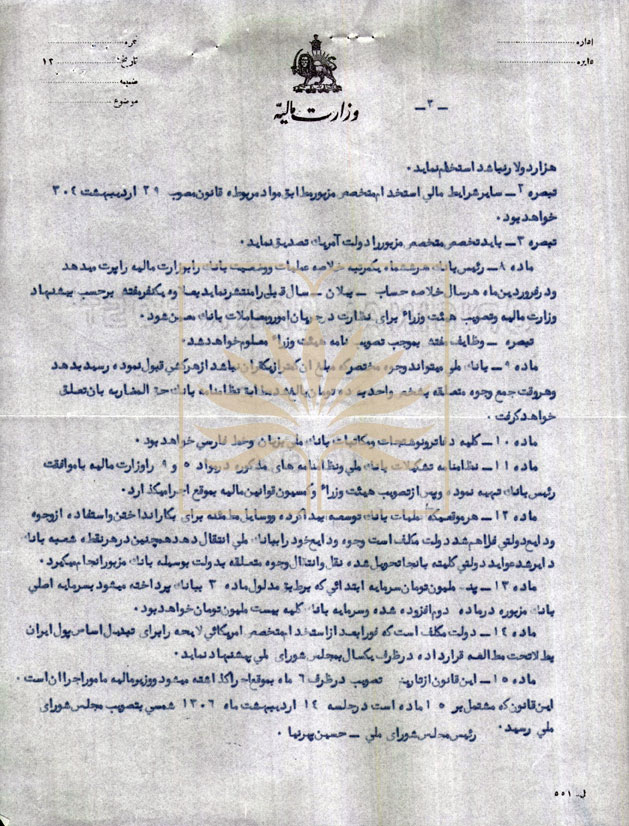 اداره
دایره
نمره
تاریخ ۱۳
ضمیمه
موضوع
وزارت مالیّه
ـ ۳ ـ
هزار دولار نباشد استخدام نماید.
تبصره ۲ ـ سایر شرایط مالی استخدام متخصص مزبور مطابق مواد مربوطه قانون مصوب ۲۹ اردیبهشت ۳۰۴
خواهد بود.
تبصره ۳ ـ باید تخصص متخصص مزبور را دولت آمریک تصدیق نماید.
ماده ۸ ـ رئیس بانک هر ششماه یکمرتبه خلاصه عملیات ووضعیت بانک را بوزارت مالیه راپرت میدهد
ودر فروردین ماه هر سال خلاصه حساب ـ بیلان ـ سال قبل را منتشر نماید بعلاوه یکنفر مفتش برحسب پیشنهاد
وزارت مالیه وتصویب هیئت وزراء برای نظارت در جریان امور ومعاملات بانک معین شود.
تبصره ـ وظایف مفتش بموجب تصویب نامه هیئت وزراء معلوم خواهد شد.
ماده ۹ ـ بانک ملی میتواند وجوه مختصر که مبلغ آن کمتر از یکقران نباشد از هر کس قبول نموده رسید بدهد
وهر وقت جمع وجوه متعلقه بشخص واحد به ده تومان بالغ شد مطابق نظامنامه بانک حق المضاربه بآن تعلق
خواهد گرفت.
ماده ۱۰ ـ کلیه دفاتر ونوشتجات ومکاتبات بانک ملی بزبان وخط فارسی خواهد بود.
ماده ۱۱ ـ نظامنامه تشکیلات بانک ملی ونظامنامه های مذکوره در مواد ۵ و ۹ را وزارت مالیه با موافقت
رئیس بانک تهیه نموده وپس از تصویب هیئت وزراء وکمسیون قوانین مالیه بموقع اجرا میگذارد.
ماده ۱۲ ـ هر موقعیکه عملیات بانک توسعه پیدا کرده ووسایل مطمئنه برای بکار انداختن واستفاده از وجوه
ودایع دولتی فراهم شد دولت مکلف است وجوه ودایع خود را ببانک ملی انتقال دهد همچنین در هر نقطه شعبه بانک
دایر شد عواید دولتی کلیتاً بانجا تحویل شده نقل وانتقال وجوه متعلقه بدولت بوسیله بانک مزبور انجام میگیرد.
ماده ۱۳ ـ پنج ملیون تومان سرمایه ابتدائی که برطبق مدلول ماده ۳ ببانک پرداخته میشود بسرمایه اصلی
بانک مزبوره در ماده دوم افزوده شده وسرمایه بانک کلیه بیست ملیون تومان خواهد بود.
ماده ۱۴ ـ دولت مکلف است که فوراً بعد از استخدام متخصص امریکائی لایحه را برای تبدیل اساس پول ایران
بطلا تحت مطالعه قرار داده در ظرف یکسال بمجلس شورای ملی پیشنهاد نماید.
ماده ۱۵ ـ این قانون از تاریخ تصویب در ظرف ۶ ماه بموقع اجرا گذاشته میشود ووزیر مالیه مامور اجرا آن است.
این قانون که مشتمل بر ۱۵ ماده است در جلسه ۱۴ اردیبهشت ماه ۱۳۰۶ شمسی بتصویب مجلس شورای
ملی رسید. رئیس مجلس شورای ملی ـ حسین پیرنیا.
ل ـ ۵۵۱